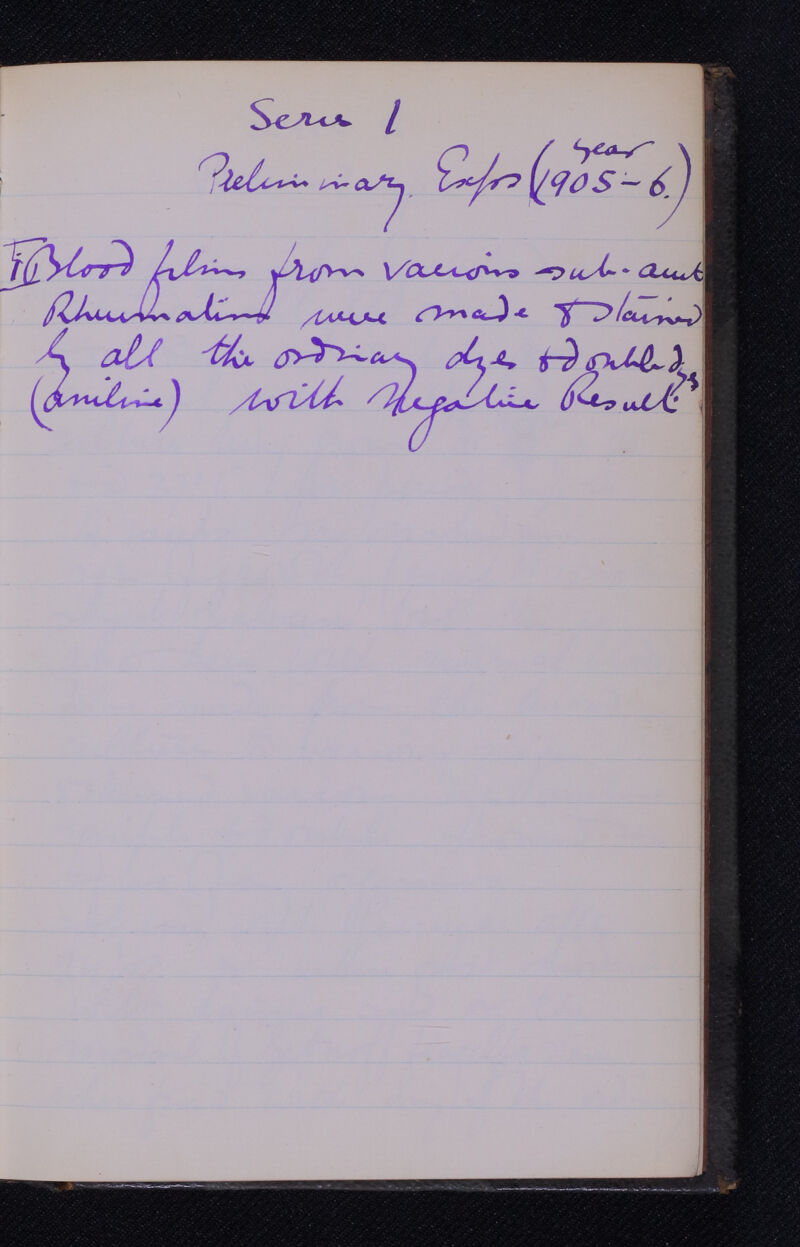 Series 1
Preliminary Expts (year 1905-6.)
I Blood films from various sub-acute
Rheumatisms were made & stained
by all the ordinary dyes & double dyes
(aniline) with Negative Result